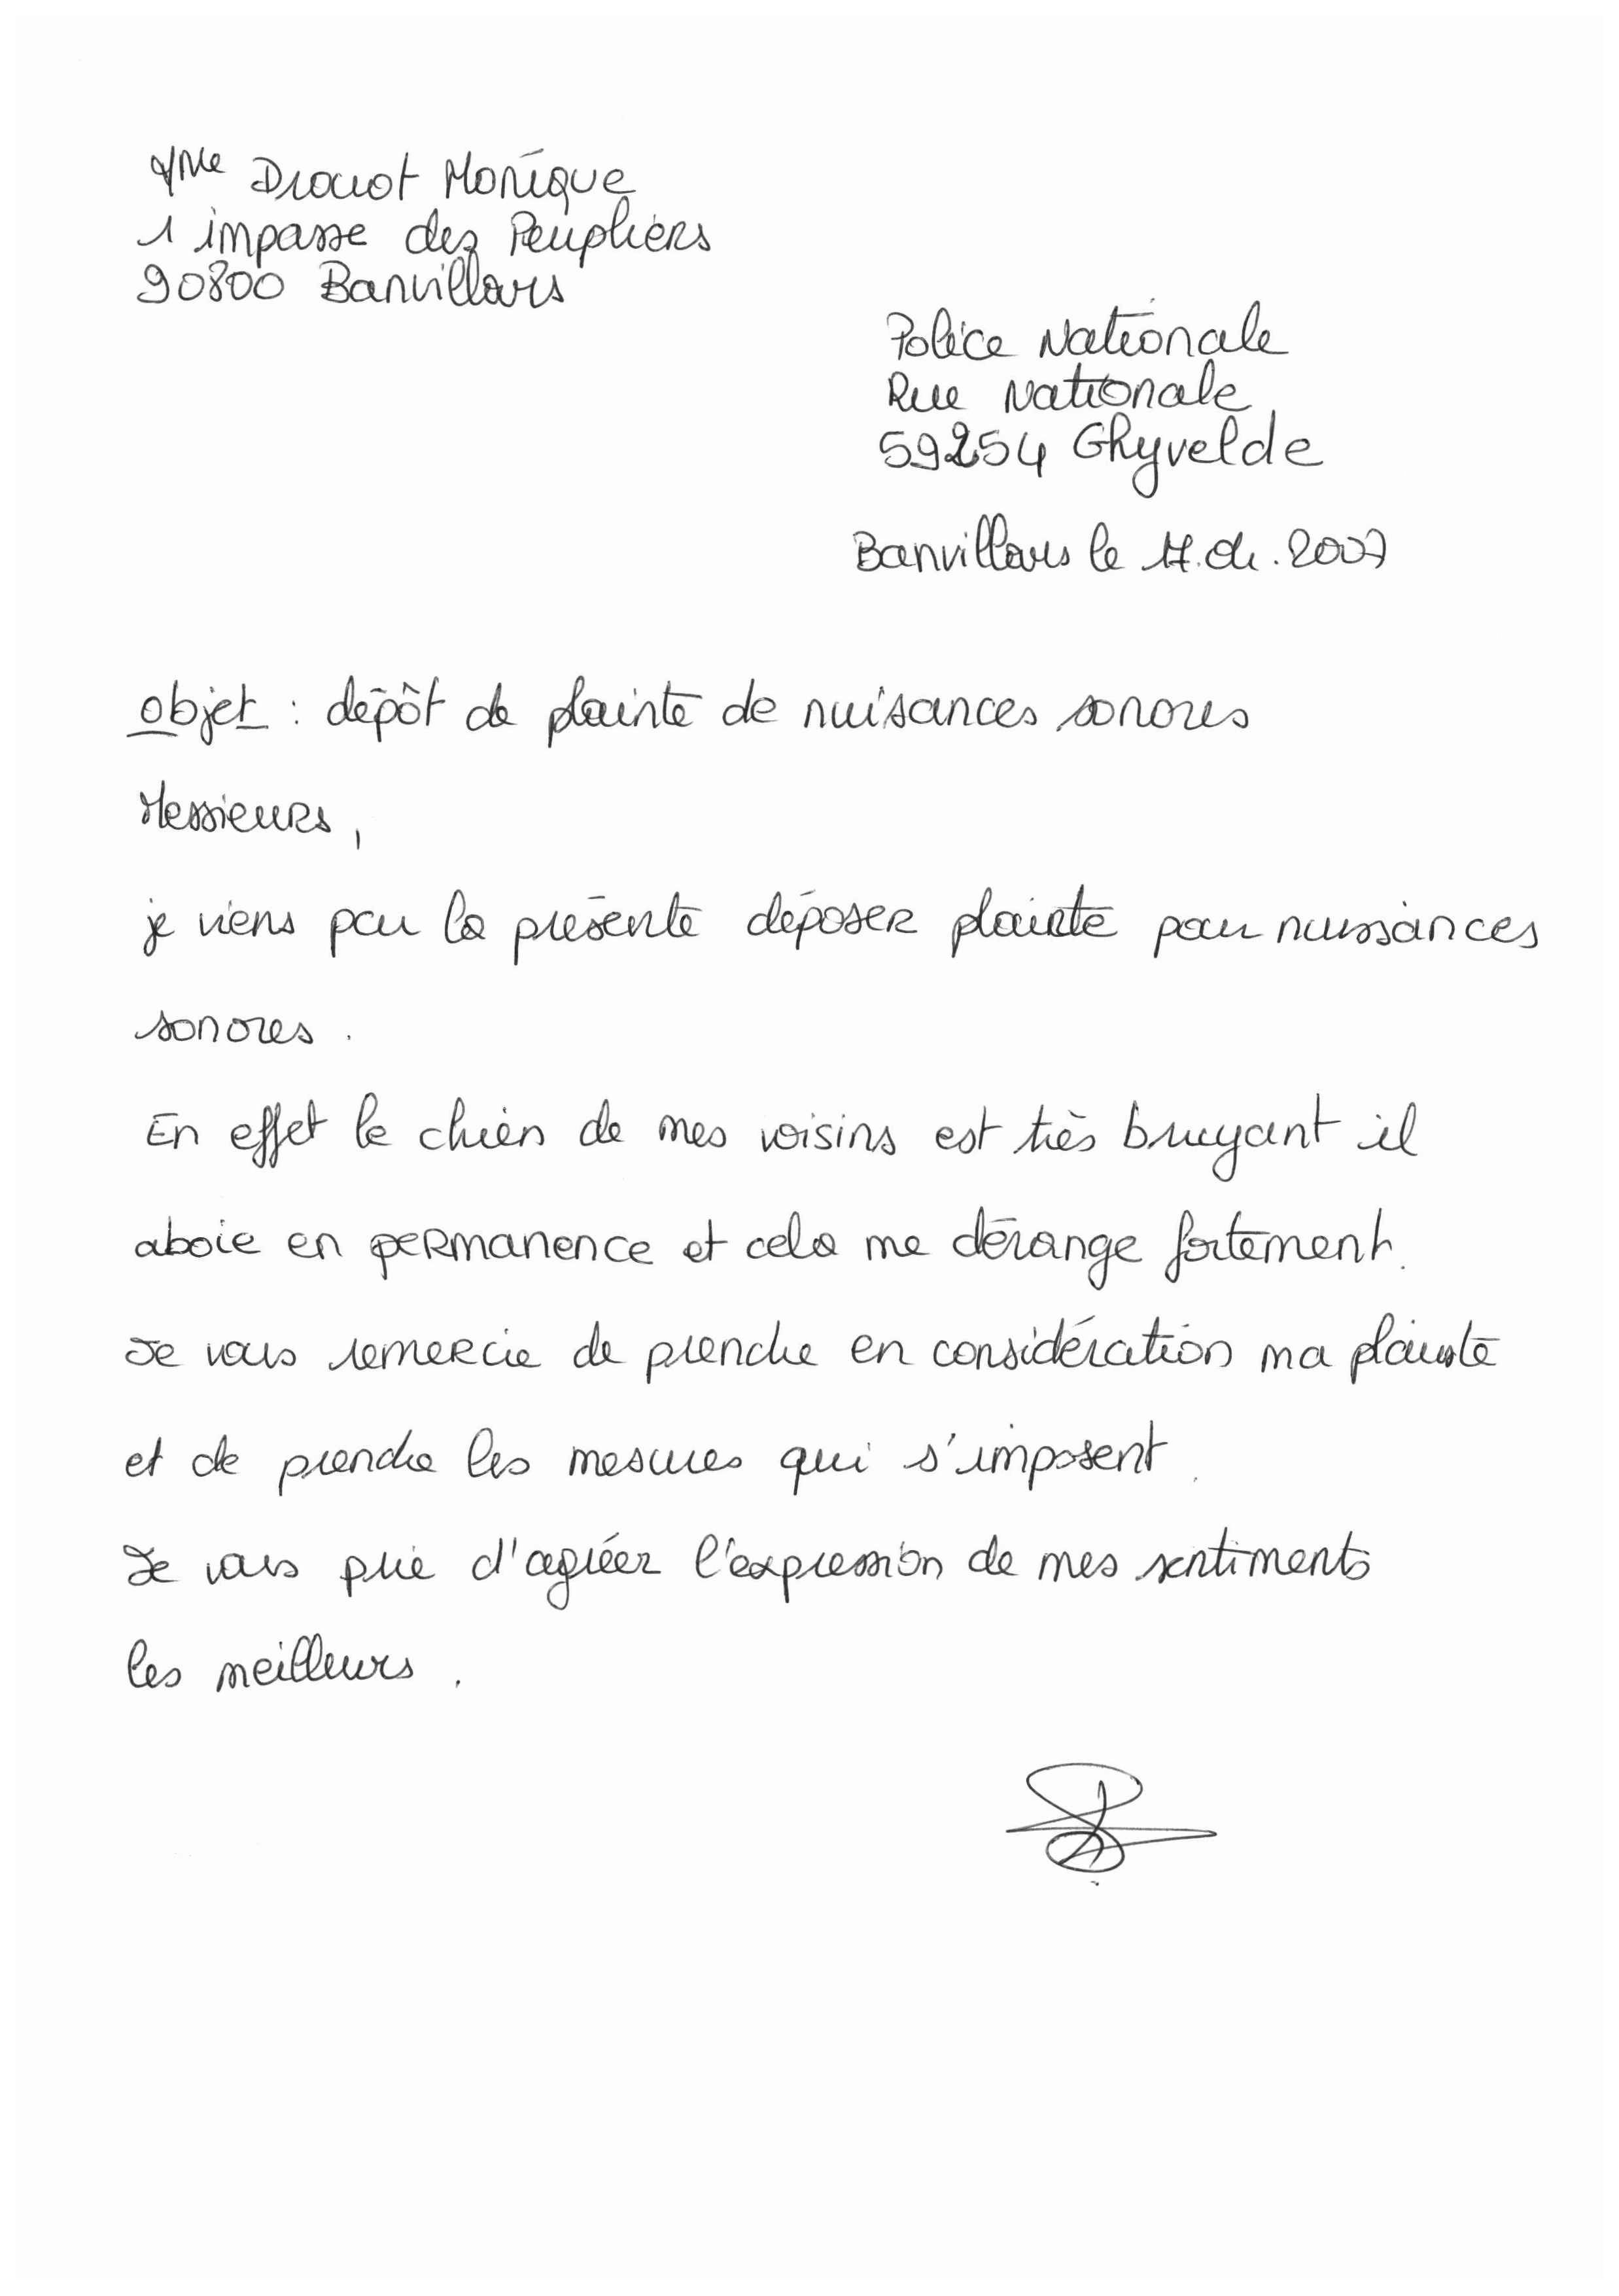 Mme Drouot Monique
1 impasse des Peupliers
90800 Banvillars
Police Nationale
Rue Nationale
59254 Ghyvelde
Banvillars le 17.01.2007
objet : dépôt de plainte de nuisances sonores
Messieurs,
je viens par la présente déposer plainte pour nuissances
sonores.
En effet le chien de mes voisins est très bruyant il
aboie en permanence et cela me dérange fortement.
Je vous remercie de prendre en considération ma plainte
et de prendre les mesures qui s'imposent.
Je vous prie d'agréer l'expression de mes sentiments
les meilleurs.